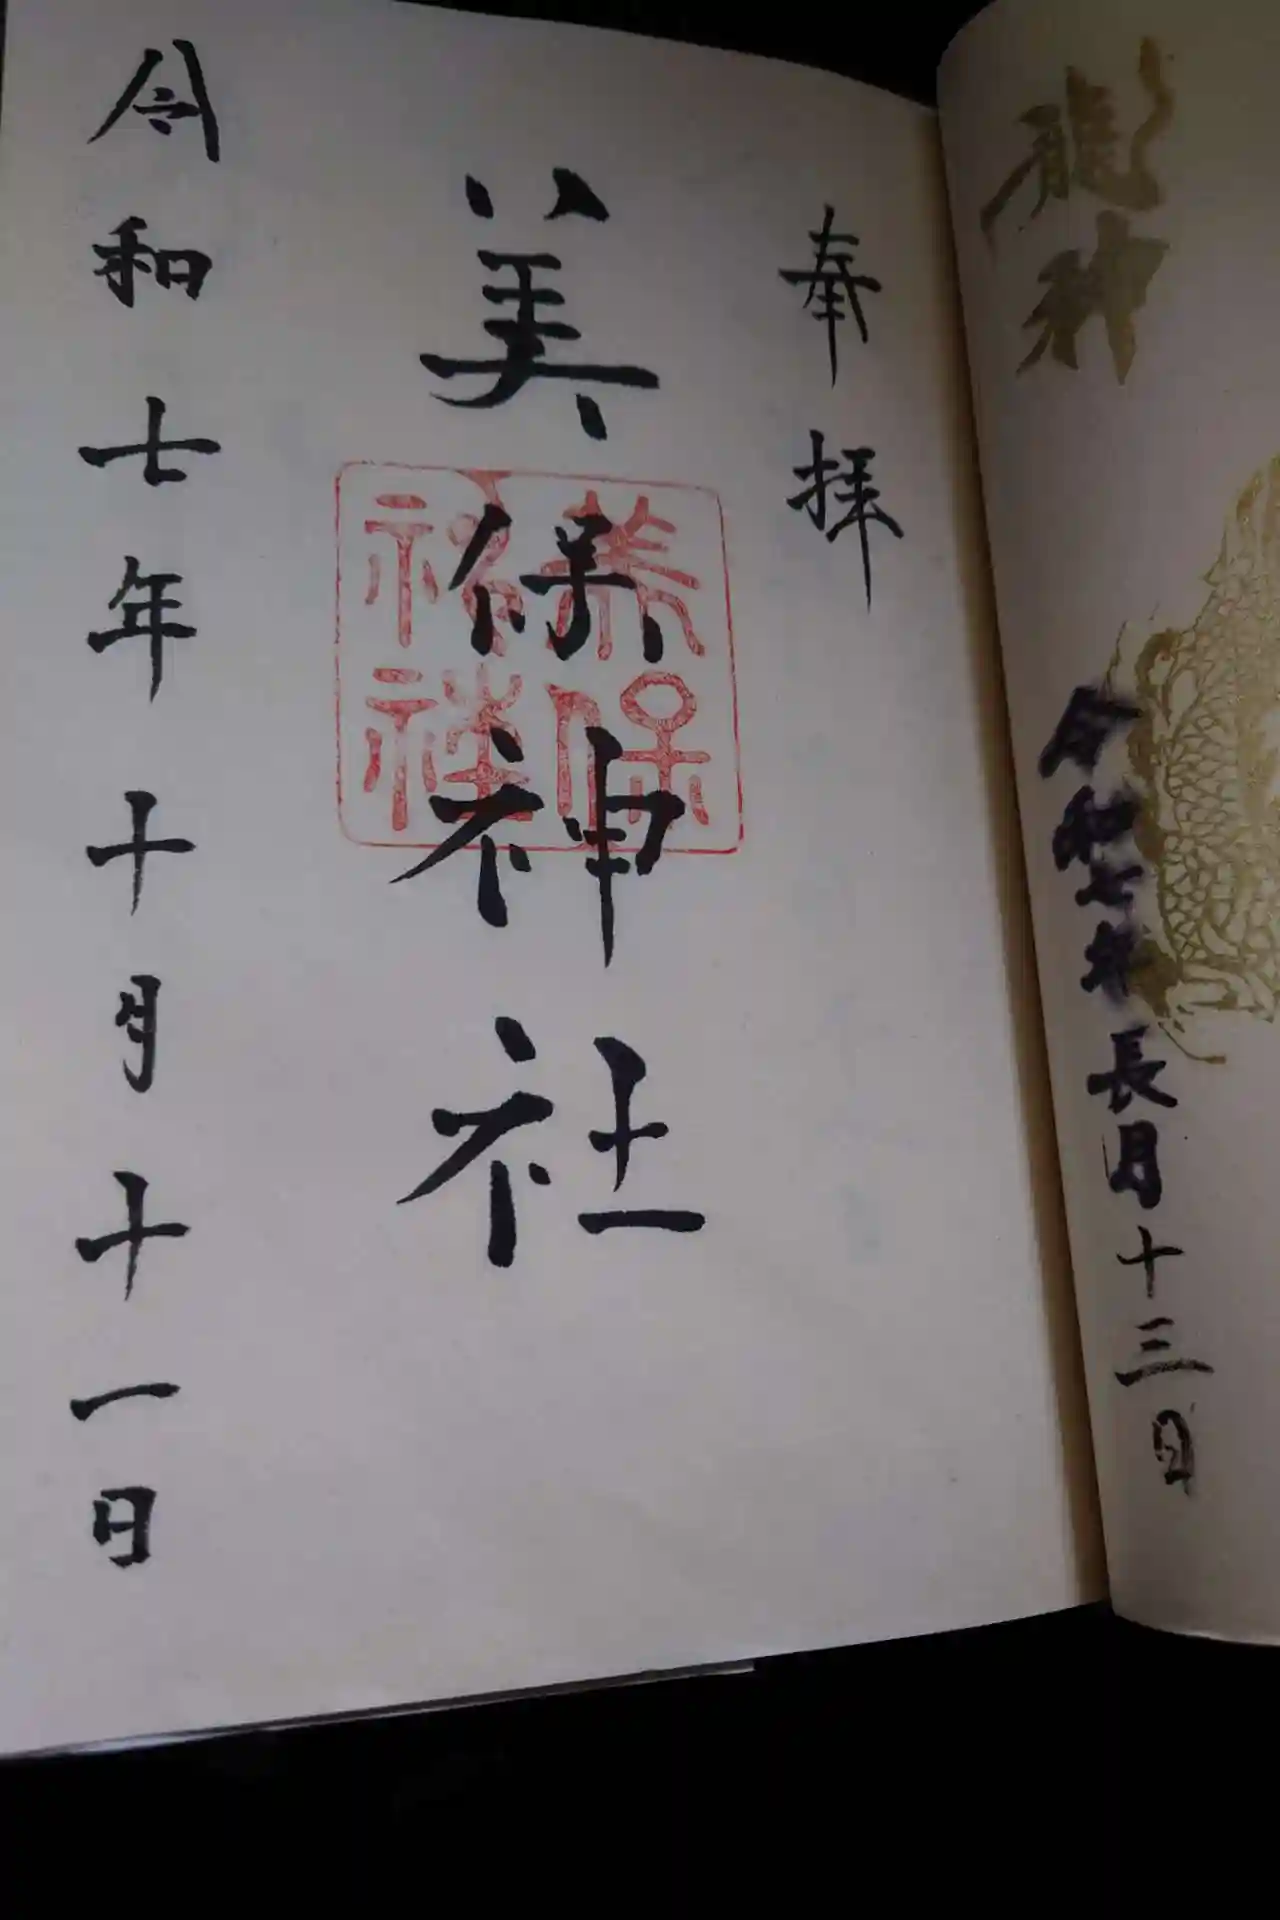 龍神
令和七年長月十三日
奉拝
美保神社
美保
令和七年十月十一日